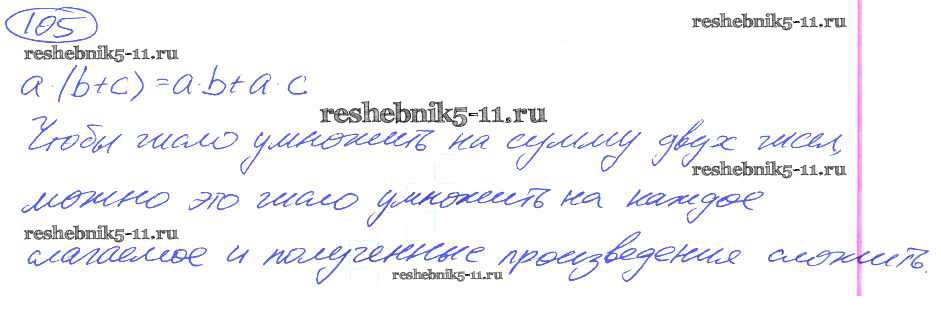 105
reshebnik5-11.ru
reshebnik5-11.ru
a·(b+c)=a·b+a·c
reshebnik5-11.ru
Чтобы число умножить на сумму двух чисел,
reshebnik5-11.ru
можно это число умножить на каждое
reshebnik5-11.ru
слагаемое и полученные произведения сложить.
reshebnik5-11.ru